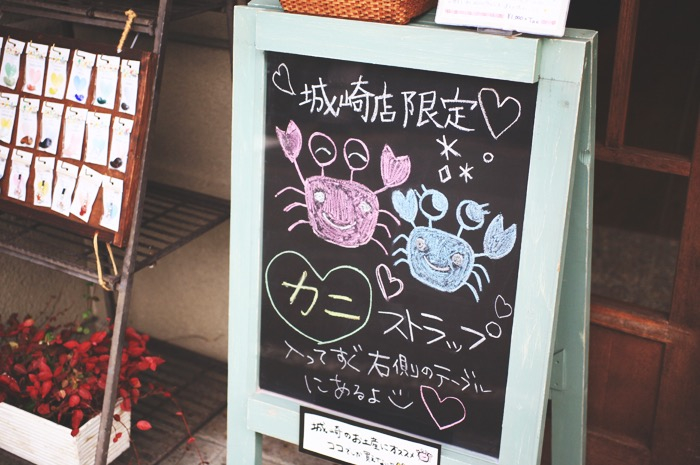 城崎店限定
カニ
ストラップ
入ってすぐ右側のテーブル
にあるよ
城崎のお土産にオススメ